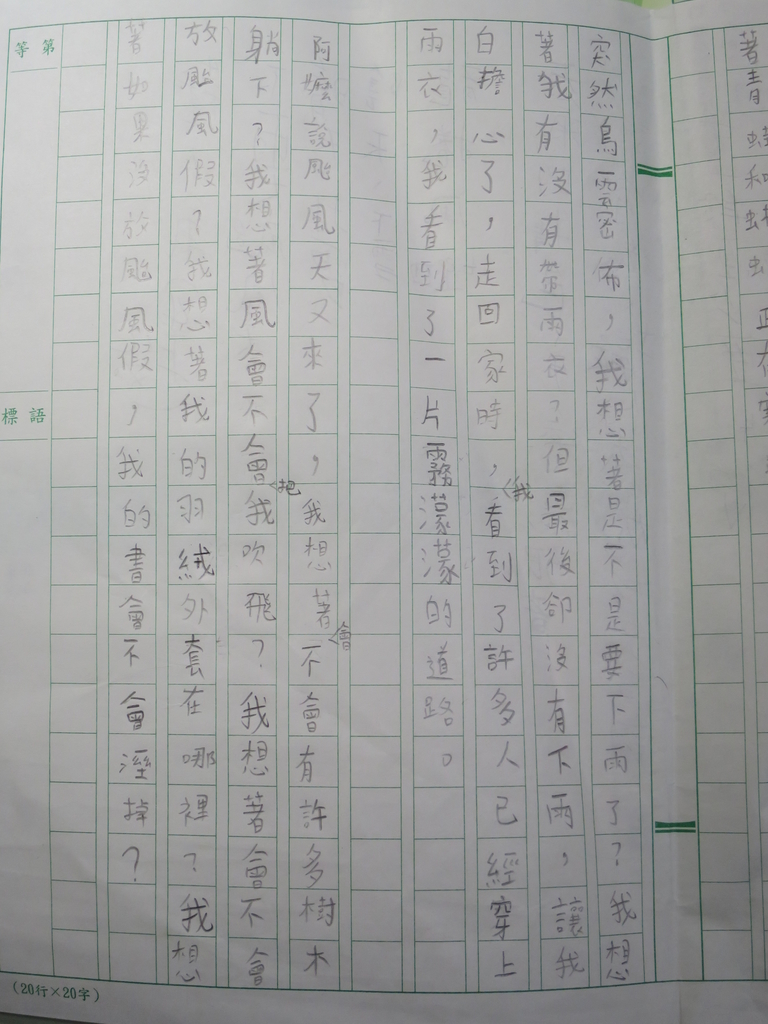 著青蛙和
突然烏雲密佈，我想著是不是要下雨了？我想
著我有沒有帶雨衣？但最後卻沒有下雨，讓我
白擔心了，走回家時，我看到了許多人已經穿上
雨衣，我看到了一片霧濛濛的道路。
阿嬤說颱風天又來了，我想著會不會有許多樹木
躺下？我想著風會不會把我吹飛？我想著會不會
放颱風假？我想著我的羽絨外套在哪裡？我想
著如果沒放颱風假，我的書會不會溼掉？
等第
標語
(20行×20字)